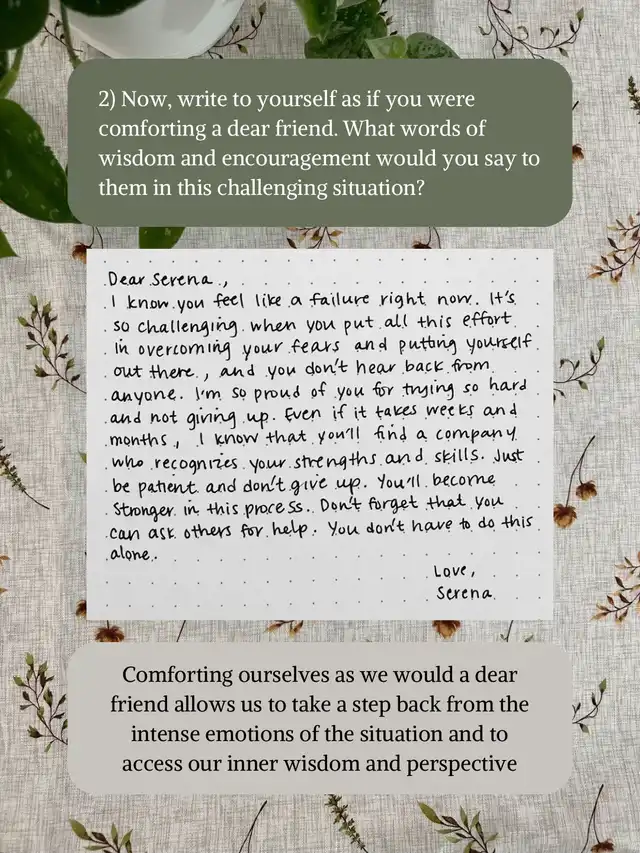 2) Now, write to yourself as if you were
comforting a dear friend. What words of
wisdom and encouragement would you say to
them in this challenging situation?
Dear Serena,
I know you feel like a failure right now. It's
so challenging when you put all this effort
in overcoming your fears and putting yourself
out there, and you don't hear back from
anyone. I'm so proud of you for trying so hard
and not giving up. Even if it takes weeks and
months, I know that you'll find a company
who recognizes your strengths and skills. Just
be patient and don't give up. You'll become
stronger in this process. Don't forget that you
can ask others for help. You don't have to do this
alone.
Love,
Serena
Comforting ourselves as we would a dear
friend allows us to take a step back from the
intense emotions of the situation and to
access our inner wisdom and perspective